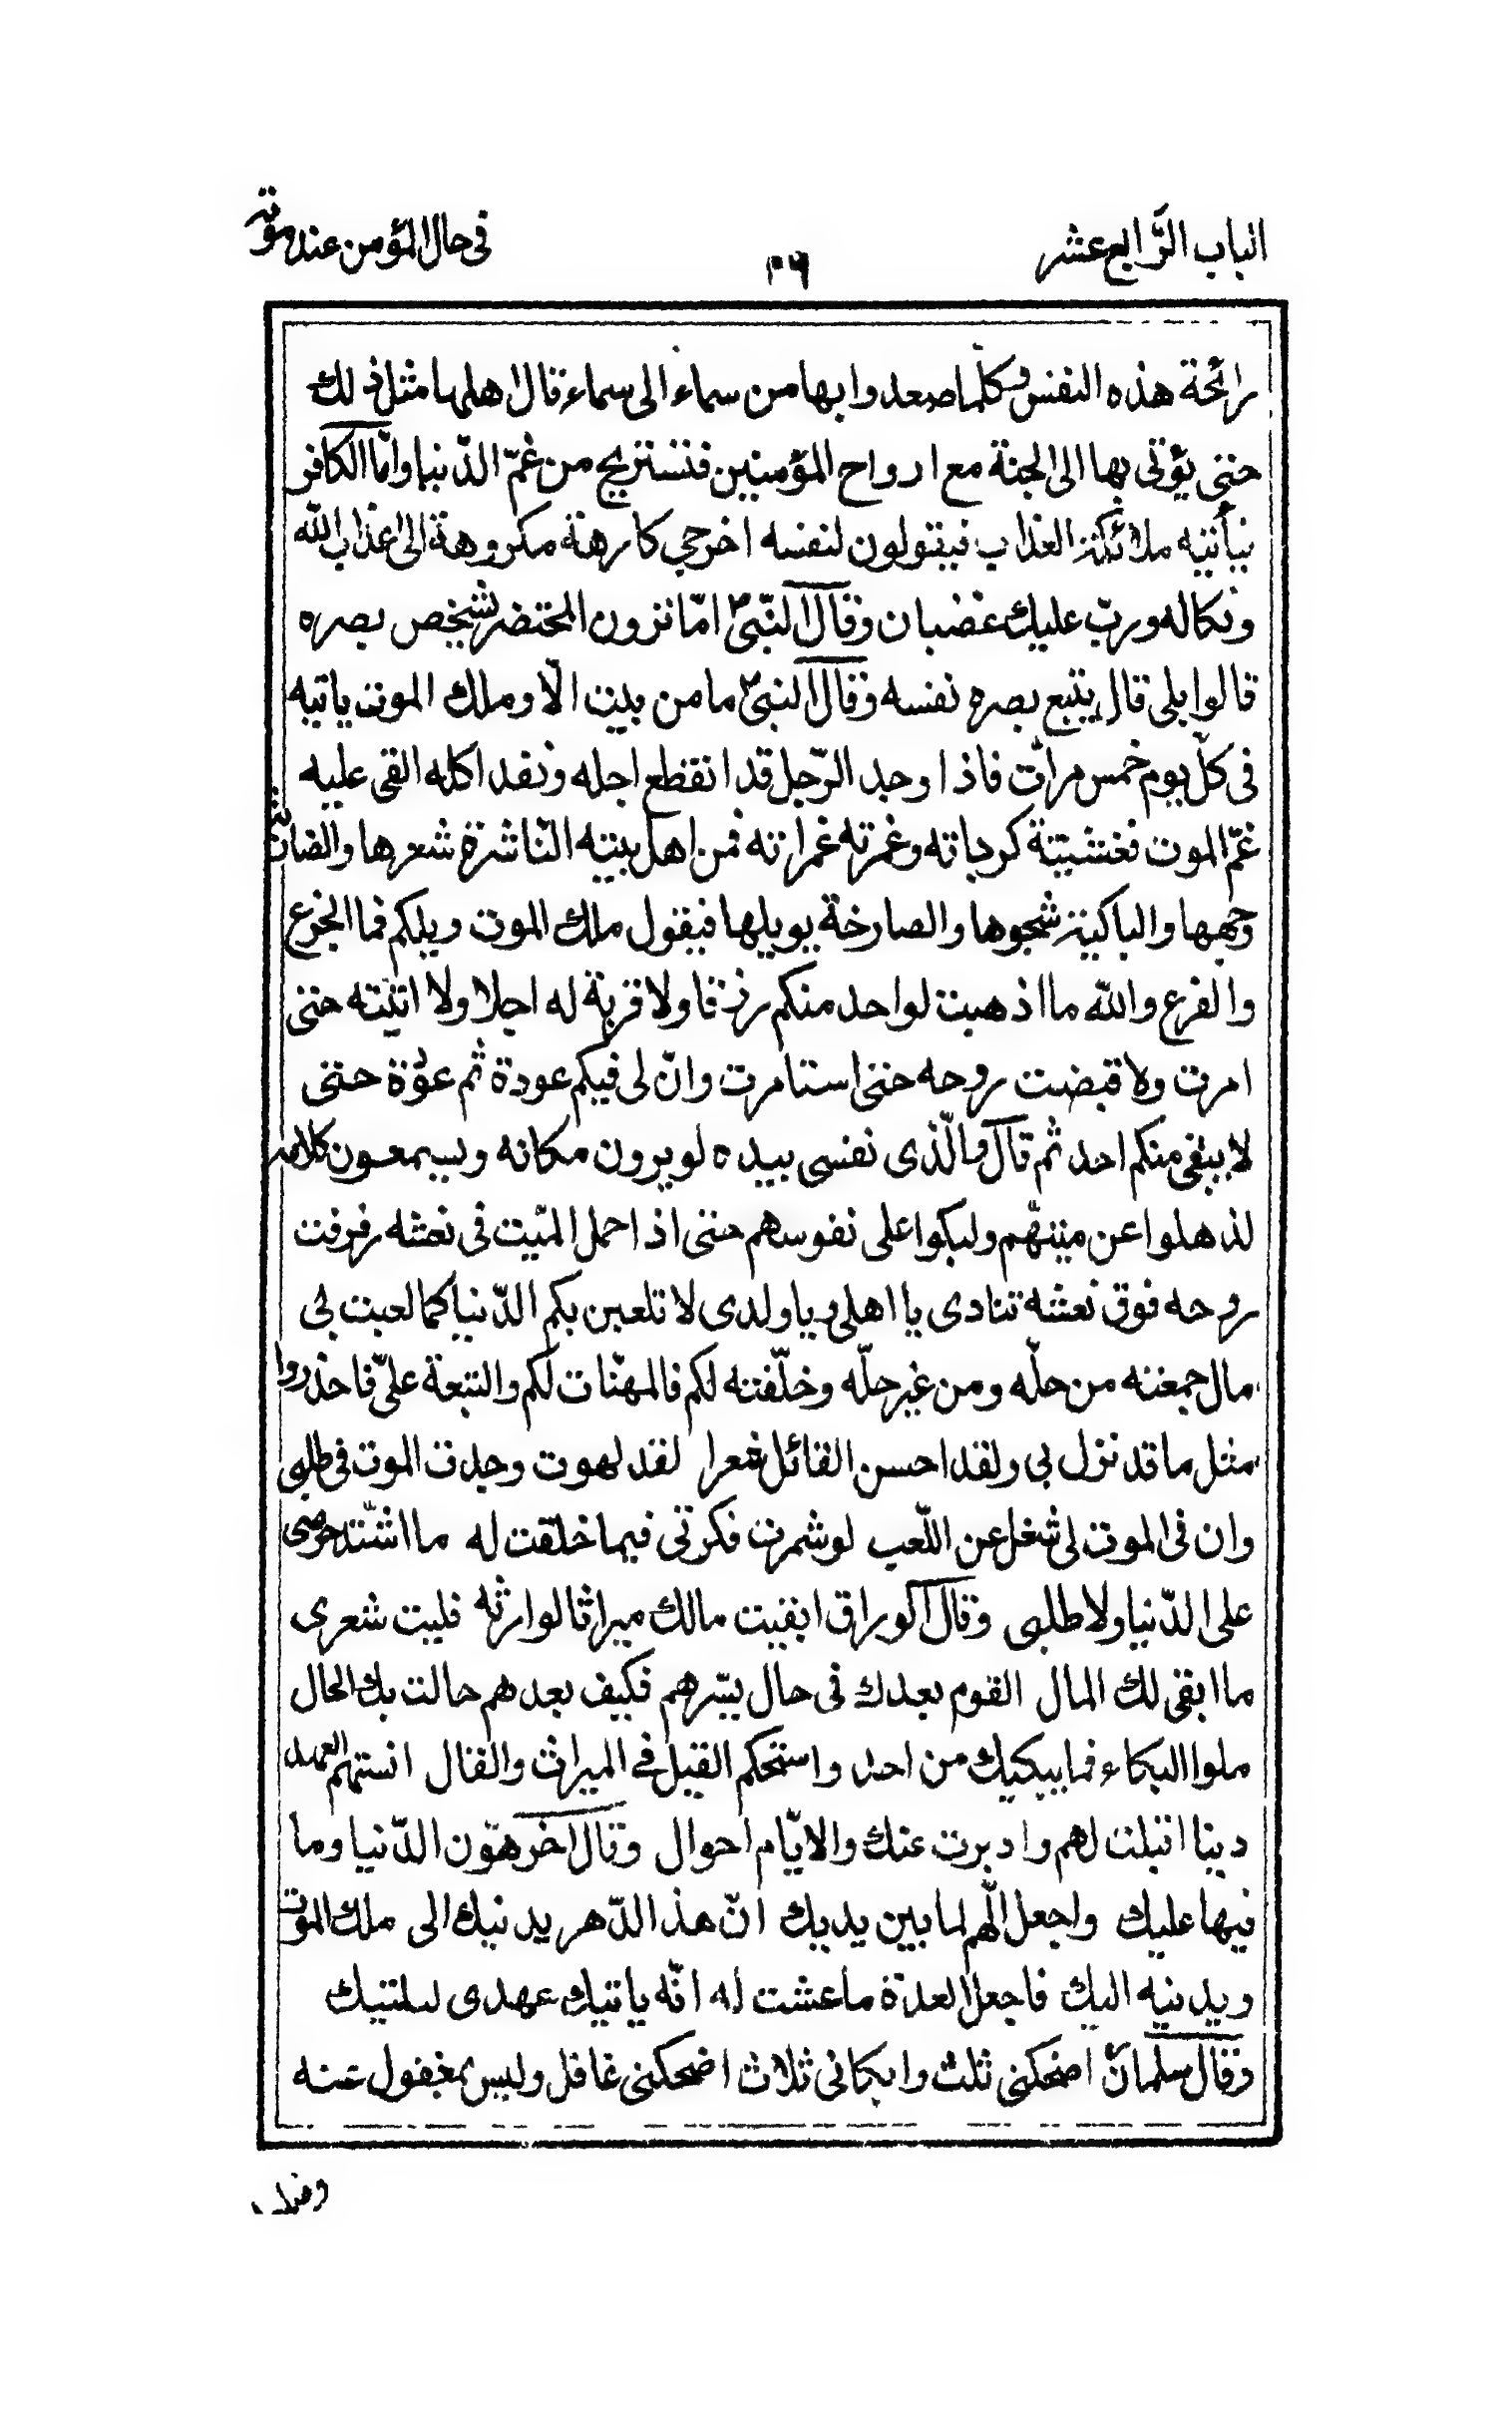 الباب الرّابع عشر
١٠٦
فى حال المؤمن عند موته
رائحة هذه النفس وكلما صعدوا بها من سماء الى سماء قال اهلها مثل ذلك
حتى يؤتى بها الى الجنة مع ارواح المؤمنين فتستريح من غمّ الدّنيا وامّا الكافر
فيأتيه ملائكة العذاب فيقولون لنفسه اخرجي كارهة مكروهة الى عذاب الله
ونكاله وربّ عليك غضبان وقال النّبىّ امّا ترون المحتضر يشخص بصره
قالوا بلى قال يتبع بصره نفسه وقال النبىّ ما من بيت الّا وملك الموت ياتيه
فى كلّ يوم خمس مرات فاذا وجد الرّجل قد انقطع اجله ونفد اكله القى عليه
غمّ الموت فغشيته كرباته وغمرته غمراته فمن اهل بيته النّاشرة شعرها والضاربة
وجهها والباكية شجوها والصارخة بويلها فيقول ملك الموت ويلكم فما الجزع
والفزع والله ما اذهبت لواحد منكم رزقا ولا قربة له اجلا ولا اتيته حتى
امرت ولا قبضت روحه حتى استامرت وانّ لى فيكم عودة ثم عودة حتى
لا يبقى منكم احد ثم قال والّذى نفسى بيده لو يرون مكانه ويسمعون كلامه
لذهلوا عن ميتهم ولبكوا على نفوسهم حتى اذا حمل الميّت فى نعشه رفرفت
روحه فوق نعشه تنادى يا اهلى ويا ولدى لا تلعبن بكم الدّنيا كما لعبت بى
مال جمعته من حلّه ومن غير حلّه وخلّفته لكم فالمهنّات لكم والتبعة علىّ فاحذروا
مثل ما قد نزل بي ولقد احسن القائل شعرا لقد لهوت وجدت الموت فى طلبى
وان فى الموت لى شغل عن اللّعب لو شمرت فكرتى فيما خلقت له ما اشتد حرصى
على الدّنيا ولا طلبى وقال الوراق ابقيت مالك ميراثا لوارثه فليت شعرى
ما ابقى لك المال القوم بعدك فى حال يسّرهم فكيف بعدهم حالت بك الحال
ملوا البكاء فما يبكيك من احد واستحكم القيل في الميراث والقال انستهم العهد
دينا اقبلت لهم وادبرت عنك والايّام احوال وقال اخر هوّن الدّنيا وما
فيها عليك واجعل الهم لما بين يديك انّ هذا الدّهر يدنيك الى ملك الموت
ويدنيه اليك فاجعل العدة ما عشت له انّه ياتيك عهدى لسلتيك
وقال سلمان اضحكنى ثلث وابكانى ثلاث اضحكنى غافل وليس بمغفول عنه